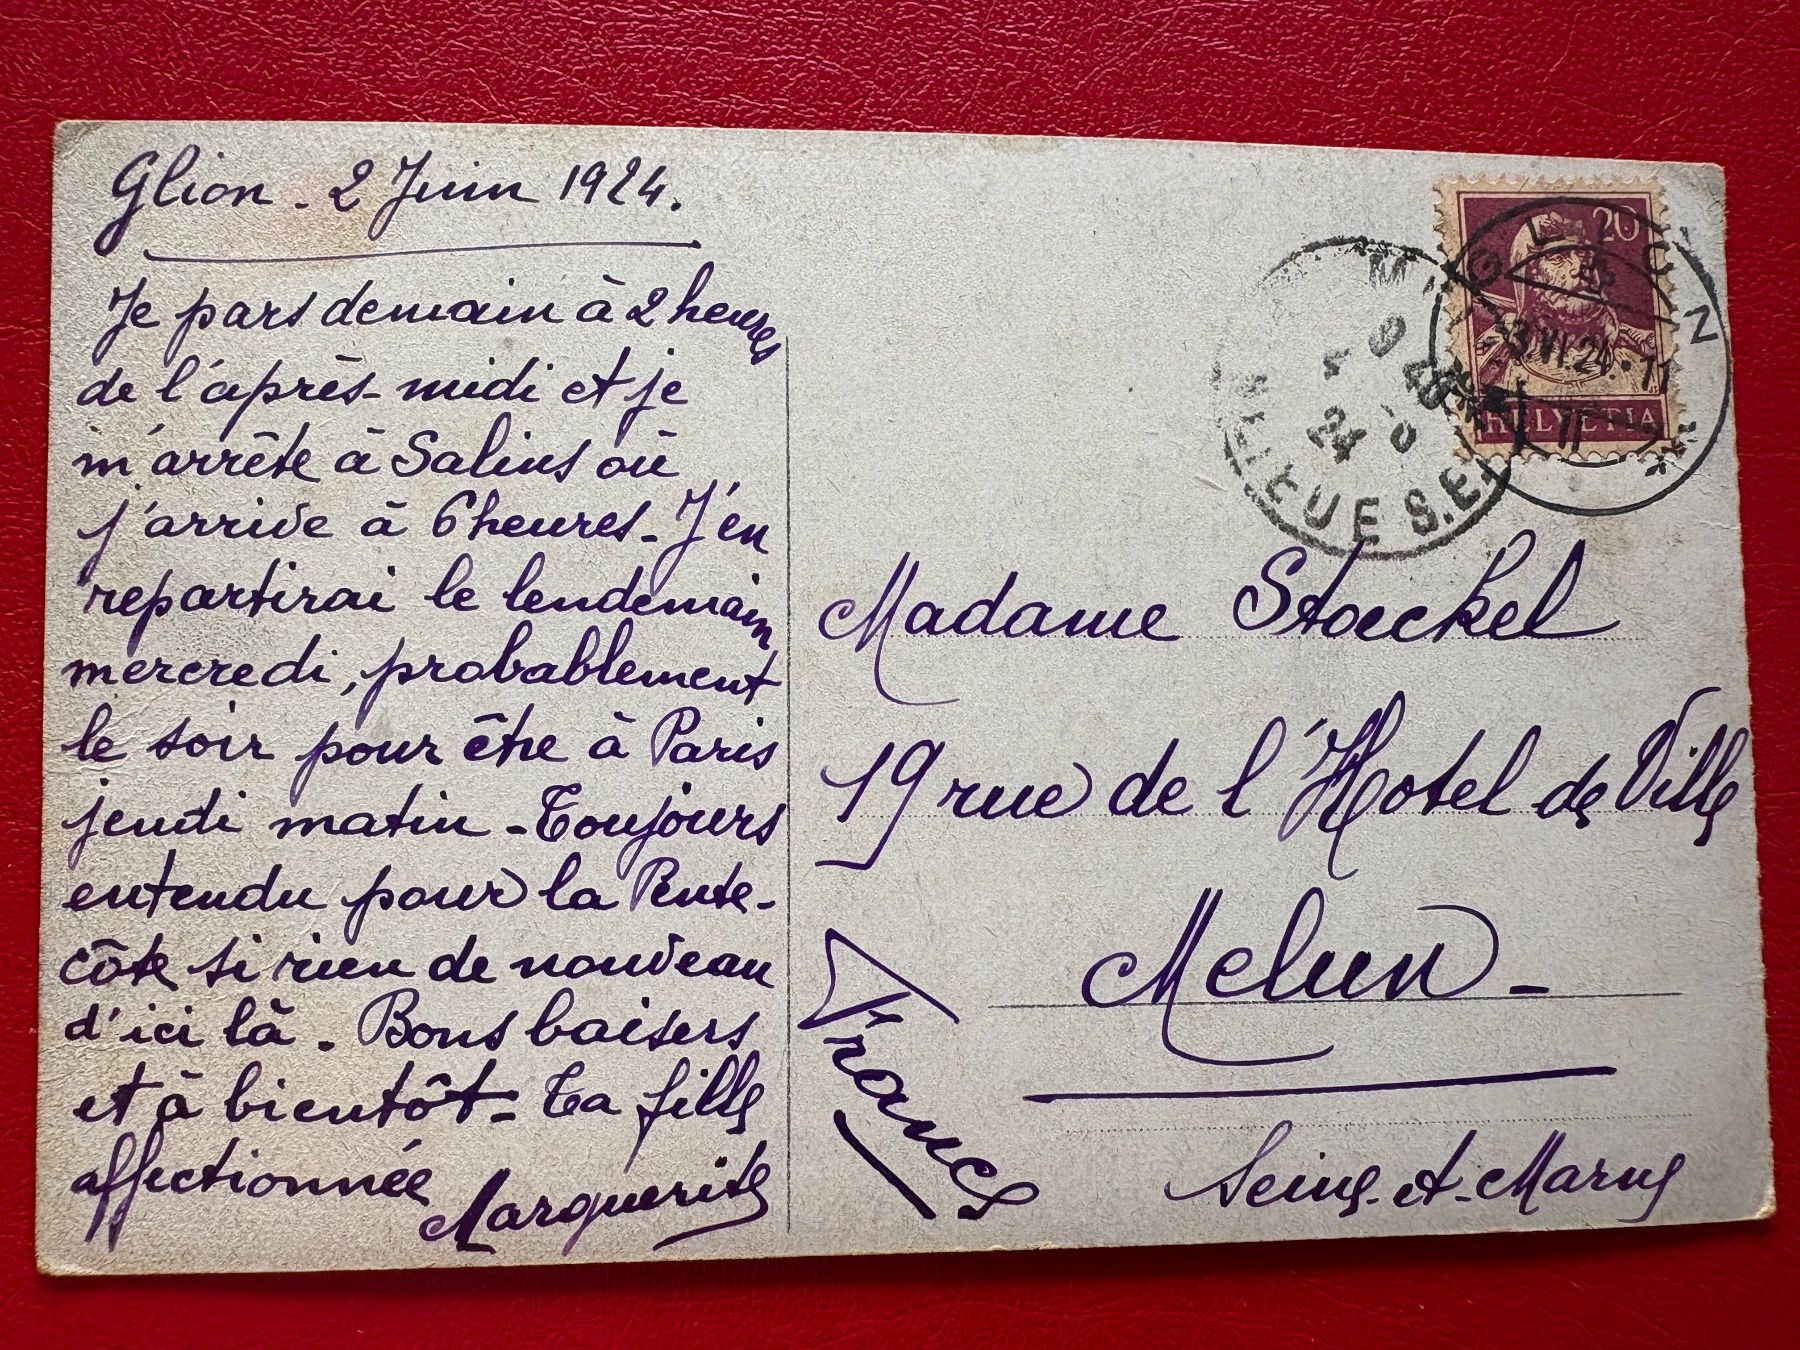 Glion - 2 Juin 1924.
Je pars demain à 2 heures
de l'après-midi et je
m'arrête à Salins où
j'arrive à 6 heures - J'en
repartirai le lendemain
mercredi, probablement
le soir pour être à Paris
jeudi matin - Toujours
entendu pour la Pente-
côte si rien de nouveau
d'ici là. Bons baisers
et à bientôt - Ta fille
affectionnée
Marguerite
20
HELVETIA
GLION
-3.VI.24.-7
24
S.E.
Madame Stoeckel
19 rue de l'Hotel de Ville
Melun -
France
Seine-et-Marne